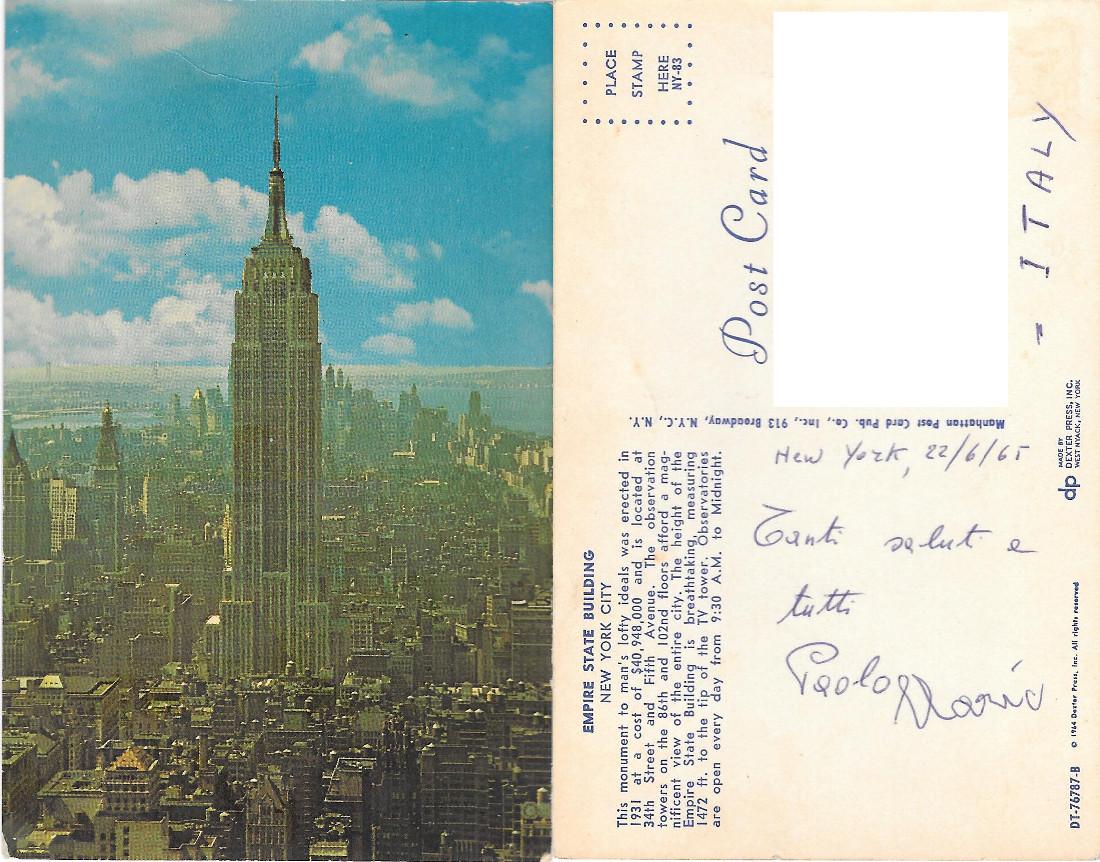 PLACE
STAMP
HERE
NY-83
Post Card
- ITALY
Manhattan Post Card Pub. Co., Inc., 913 Broadway, N.Y.C., N.Y.
EMPIRE STATE BUILDING
NEW YORK CITY
This monument to man's lofty ideals was erected in
1931 at a cost of $40,948,000 and is located at
34th Street and Fifth Avenue. The observation
towers on the 86th and 102nd floors afford a mag-
nificent view of the entire city. The height of the
Empire State Building is breathtaking, measuring
1472 ft. to the tip of the TV tower. Observatories
are open every day from 9:30 A.M. to Midnight.
New York, 22/6/65
Tanti saluti a
tutti
Paolo Mario
dp MADE BY
DEXTER PRESS, INC.
WEST NYACK, NEW YORK
DT-76787-B
© 1964 Dexter Press, Inc. All rights reserved